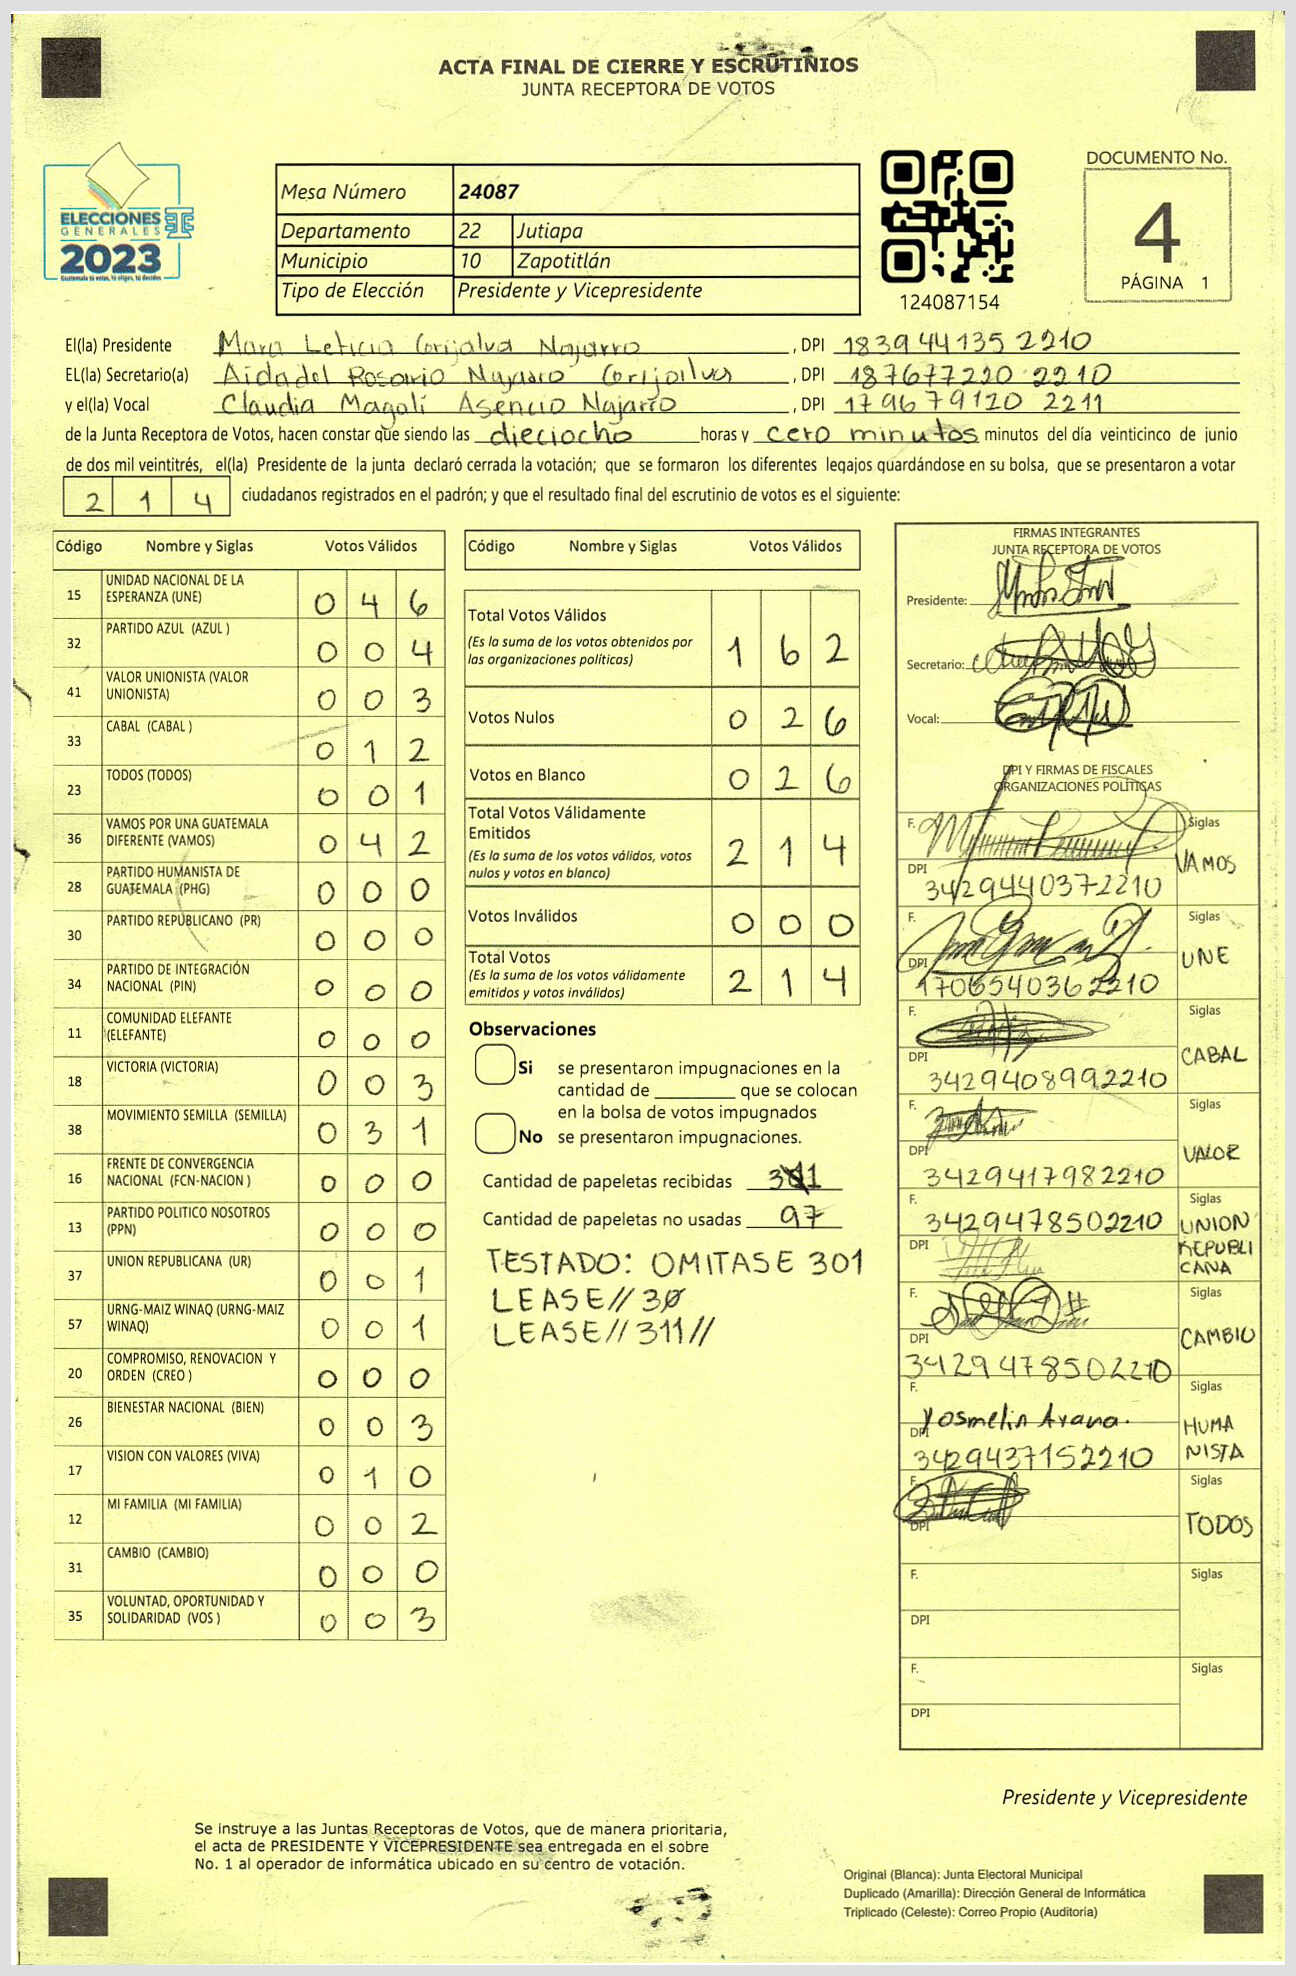 ACTA FINAL DE CIERRE Y ESCRUTINIOS
JUNTA RECEPTORA DE VOTOS
ELECCIONES
GENERALES
2023
Mesa Número 24087
Departamento 22 Jutiapa
Municipio 10 Zapotitlán
Tipo de Elección Presidente y Vicepresidente
124087154
DOCUMENTO No.
4
PÁGINA 1
El(la) Presidente Mara Leticia Grijalva Najarro , DPI 183944135 2210
EL(la) Secretario(a) Aida del Rosario Najarro Grijalva , DPI 187677220 2210
y el(la) Vocal Claudia Magalí Asencio Najarro , DPI 179679120 2211
de la Junta Receptora de Votos, hacen constar que siendo las dieciocho horas y cero minutos minutos del día veinticinco de junio
de dos mil veintitrés, el(la) Presidente de la junta declaró cerrada la votación; que se formaron los diferentes legajos guardándose en su bolsa, que se presentaron a votar
2 1 4 ciudadanos registrados en el padrón; y que el resultado final del escrutinio de votos es el siguiente:
Código Nombre y Siglas Votos Válidos
15 UNIDAD NACIONAL DE LA ESPERANZA (UNE) 0 4 6
32 PARTIDO AZUL (AZUL ) 0 0 4
41 VALOR UNIONISTA (VALOR UNIONISTA) 0 0 3
33 CABAL (CABAL ) 0 1 2
23 TODOS (TODOS) 0 0 1
36 VAMOS POR UNA GUATEMALA DIFERENTE (VAMOS) 0 4 2
28 PARTIDO HUMANISTA DE GUATEMALA (PHG) 0 0 0
30 PARTIDO REPUBLICANO (PR) 0 0 0
34 PARTIDO DE INTEGRACIÓN NACIONAL (PIN) 0 0 0
11 COMUNIDAD ELEFANTE (ELEFANTE) 0 0 0
18 VICTORIA (VICTORIA) 0 0 3
38 MOVIMIENTO SEMILLA (SEMILLA) 0 3 1
16 FRENTE DE CONVERGENCIA NACIONAL (FCN-NACION ) 0 0 0
13 PARTIDO POLITICO NOSOTROS (PPN) 0 0 0
37 UNION REPUBLICANA (UR) 0 0 1
57 URNG-MAIZ WINAQ (URNG-MAIZ WINAQ) 0 0 1
20 COMPROMISO, RENOVACION Y ORDEN (CREO ) 0 0 0
26 BIENESTAR NACIONAL (BIEN) 0 0 3
17 VISION CON VALORES (VIVA) 0 1 0
12 MI FAMILIA (MI FAMILIA) 0 0 2
31 CAMBIO (CAMBIO) 0 0 0
35 VOLUNTAD, OPORTUNIDAD Y SOLIDARIDAD (VOS ) 0 0 3
Código Nombre y Siglas Votos Válidos
Total Votos Válidos 1 6 2
(Es la suma de los votos obtenidos por
las organizaciones políticas)
Votos Nulos 0 2 6
Votos en Blanco 0 2 6
Total Votos Válidamente
Emitidos 2 1 4
(Es la suma de los votos válidos, votos
nulos y votos en blanco)
Votos Inválidos 0 0 0
Total Votos 2 1 4
(Es la suma de los votos válidamente
emitidos y votos inválidos)
Observaciones
Si se presentaron impugnaciones en la
cantidad de ________ que se colocan
en la bolsa de votos impugnados
No se presentaron impugnaciones.
Cantidad de papeletas recibidas
Cantidad de papeletas no usadas 97
TESTADO: OMITASE 301
LEASE//30
LEASE//311//
FIRMAS INTEGRANTES
JUNTA RECEPTORA DE VOTOS
Presidente:
Secretario:
Vocal:
DPI Y FIRMAS DE FISCALES
ORGANIZACIONES POLÍTICAS
F. Siglas
DPI VAMOS
3429440372210
F. Siglas
DPI UNE
1706540362210
F. Siglas
DPI CABAL
3429408992210
F. Siglas
DPI VALOR
3429417982210
F. Siglas
3429478502210 UNION
DPI REPUBLI
CANA
F. Siglas
DPI CAMBIO
3429478502210
F. Siglas
Yosmelin Arana.
DPI HUMA
3429437152210 NISTA
F. Siglas
DPI TODOS
F. Siglas
DPI
F. Siglas
DPI
Presidente y Vicepresidente
Se instruye a las Juntas Receptoras de Votos, que de manera prioritaria,
el acta de PRESIDENTE Y VICEPRESIDENTE sea entregada en el sobre
No. 1 al operador de informática ubicado en su centro de votación.
Original (Blanca): Junta Electoral Municipal
Duplicado (Amarilla): Dirección General de Informática
Triplicado (Celeste): Correo Propio (Auditoría)